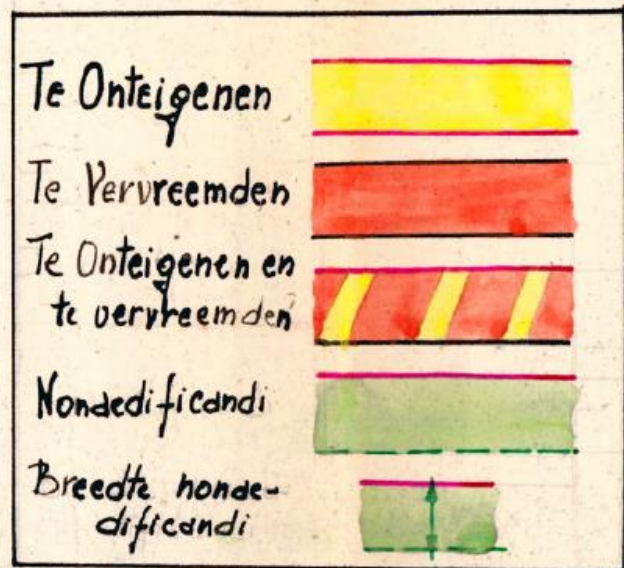 Te Onteigenen
Te Vervreemden
Te Onteigenen en
te vervreemden
Nondedificandi
Breedte nonde-
dificandi